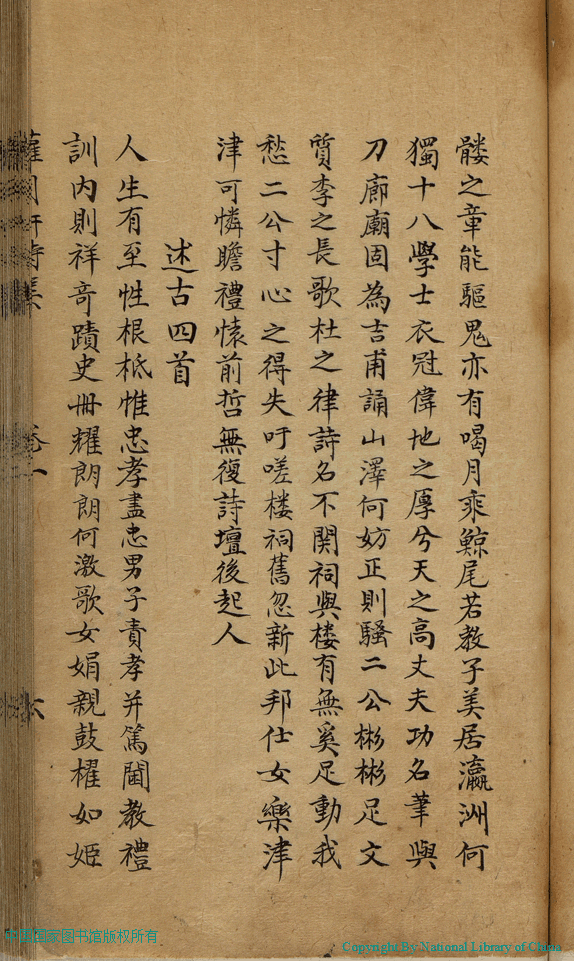 髏之章能驅鬼亦有喝月乘鯨尾若教子美居瀛洲何
獨十八學士衣冠偉地之厚兮天之高丈夫功名筆與
刀廊廟固為吉甫誦山澤何妨正則騷二公彬彬足文
質李之長歌杜之律詩名不関祠與楼有無奚足動我
愁二公寸心之得失吁嗟楼祠舊忽新此邦仕女樂津
津可憐瞻禮懐前哲無復詩壇後起人
述古四首
人生有至性根柢惟忠孝盡忠男子責孝并篤閫教禮
訓內則祥奇蹟史冊耀朗朗何激歌女娟親鼓櫂如姬
卷一
六
中国国家图书馆版权所有
Copyright By National Library of China